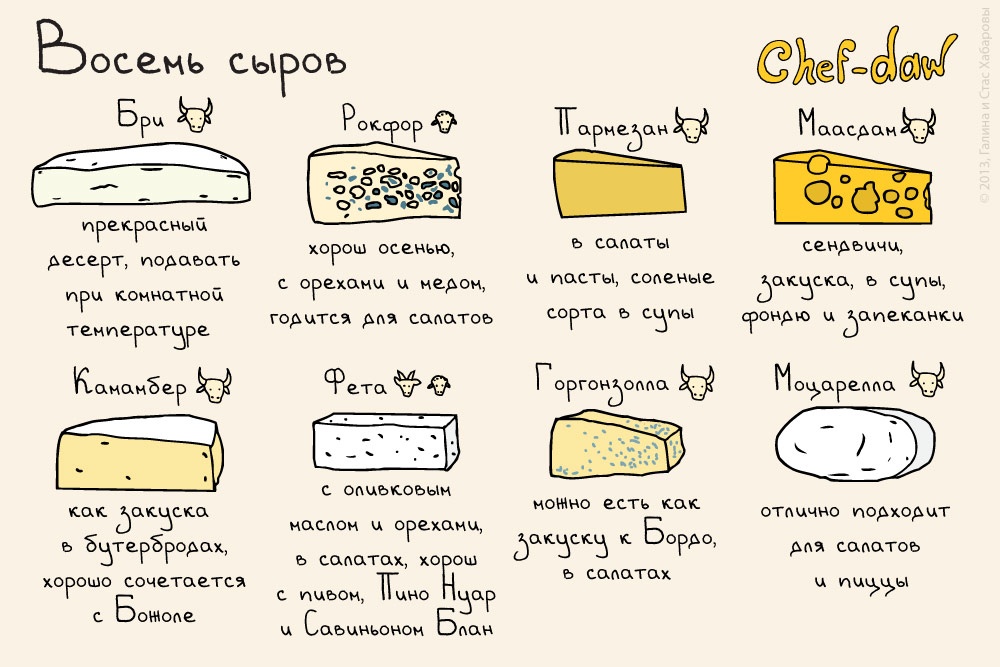 Восемь сыров
Chef-daw
© 2013, Галина и Стас Хабаровы
Бри
прекрасный
десерт, подавать
при комнатной
температуре
Рокфор
хорош осенью,
с орехами и медом,
годится для салатов
Пармезан
в салаты
и пасты, соленые
сорта в супы
Маасдам
сендвичи,
закуска, в супы,
фондю и запеканки
Камамбер
как закуска
в бутербродах,
хорошо сочетается
с Божоле
Фета
с оливковым
маслом и орехами,
в салатах, хорош
с пивом, Пино Нуар
и Савиньоном Блан
Горгонзолла
можно есть как
закуску к Бордо,
в салатах
Моцарелла
отлично подходит
для салатов
и пиццы